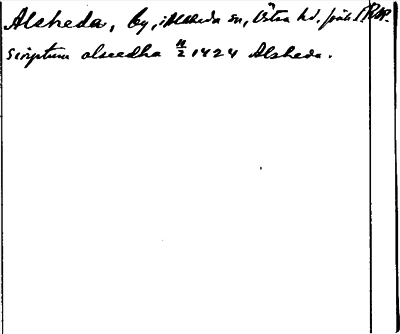 Alsheda, by, i Alsheda sn, Östra hd. Jönk. l. RAP.
Scriptum alseedha 11/2 1424 Alsheda.